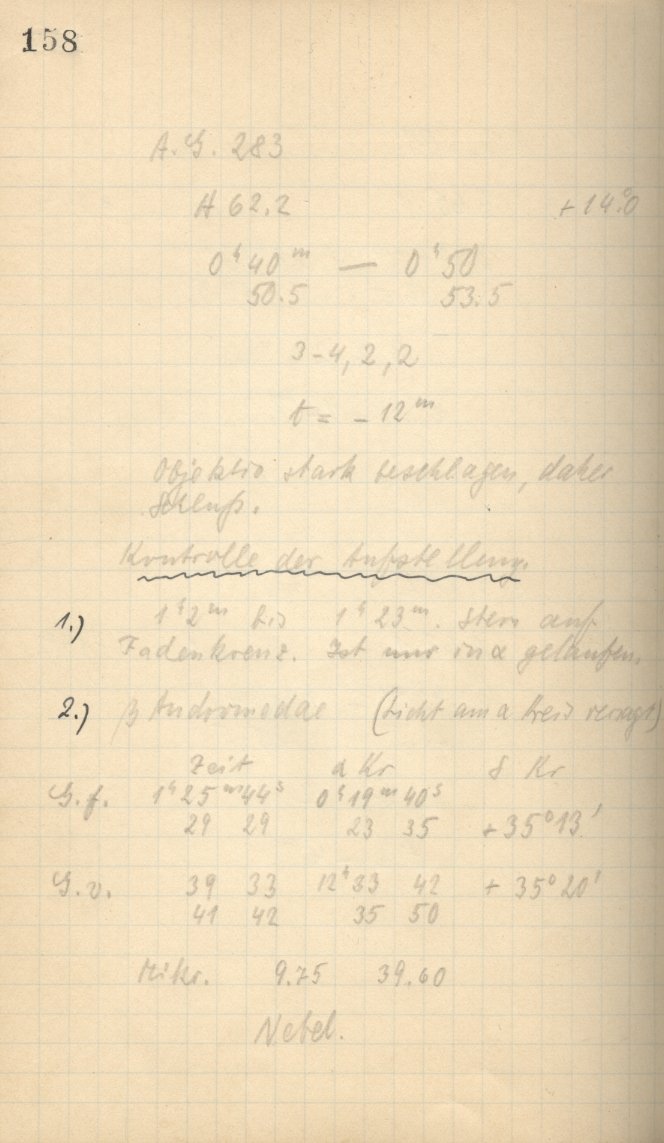 158
A.G. 283
A 62.2 +14.°0
0ʰ40ᵐ — 0ʰ50
50.5 53.5
3-4, 2, 2
t = -12ᵐ
Objektiv stark beschlagen, daher
Schluß.
Kontrolle der Aufstellung.
1.) 1ʰ2ᵐ bis 1ʰ23ᵐ. Stern auf
Fadenkreuz. Ist nur in α gelaufen.
2.) β Andromedae (Licht am α Kreis versagt)
Zeit α Kr δ Kr
G.f. 1ʰ25ᵐ44ˢ 0ʰ19ᵐ40ˢ
29 29 23 35 +35°13'
G.v. 39 33 12ʰ33 42 +35°20'
41 42 35 50
Mikr. 9.75 39.60
Nebel.